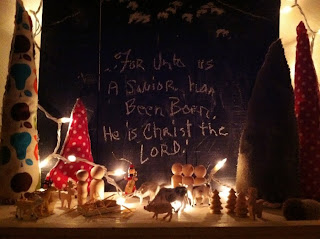 "For Unto us
A Savior has
Been Born,
He is Christ the
LORD.'